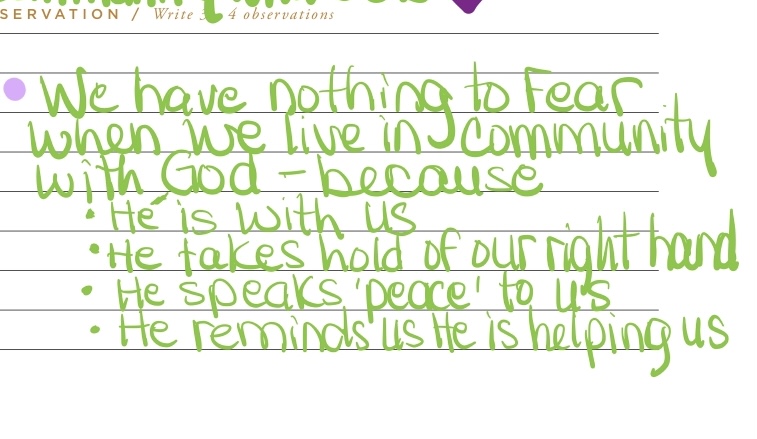 SERVATION / Write 3 - 4 observations
We have nothing to fear
when we live in community
with God - because
• He is with us
• He takes hold of our right hand
• He speaks 'peace' to us
• He reminds us He is helping us